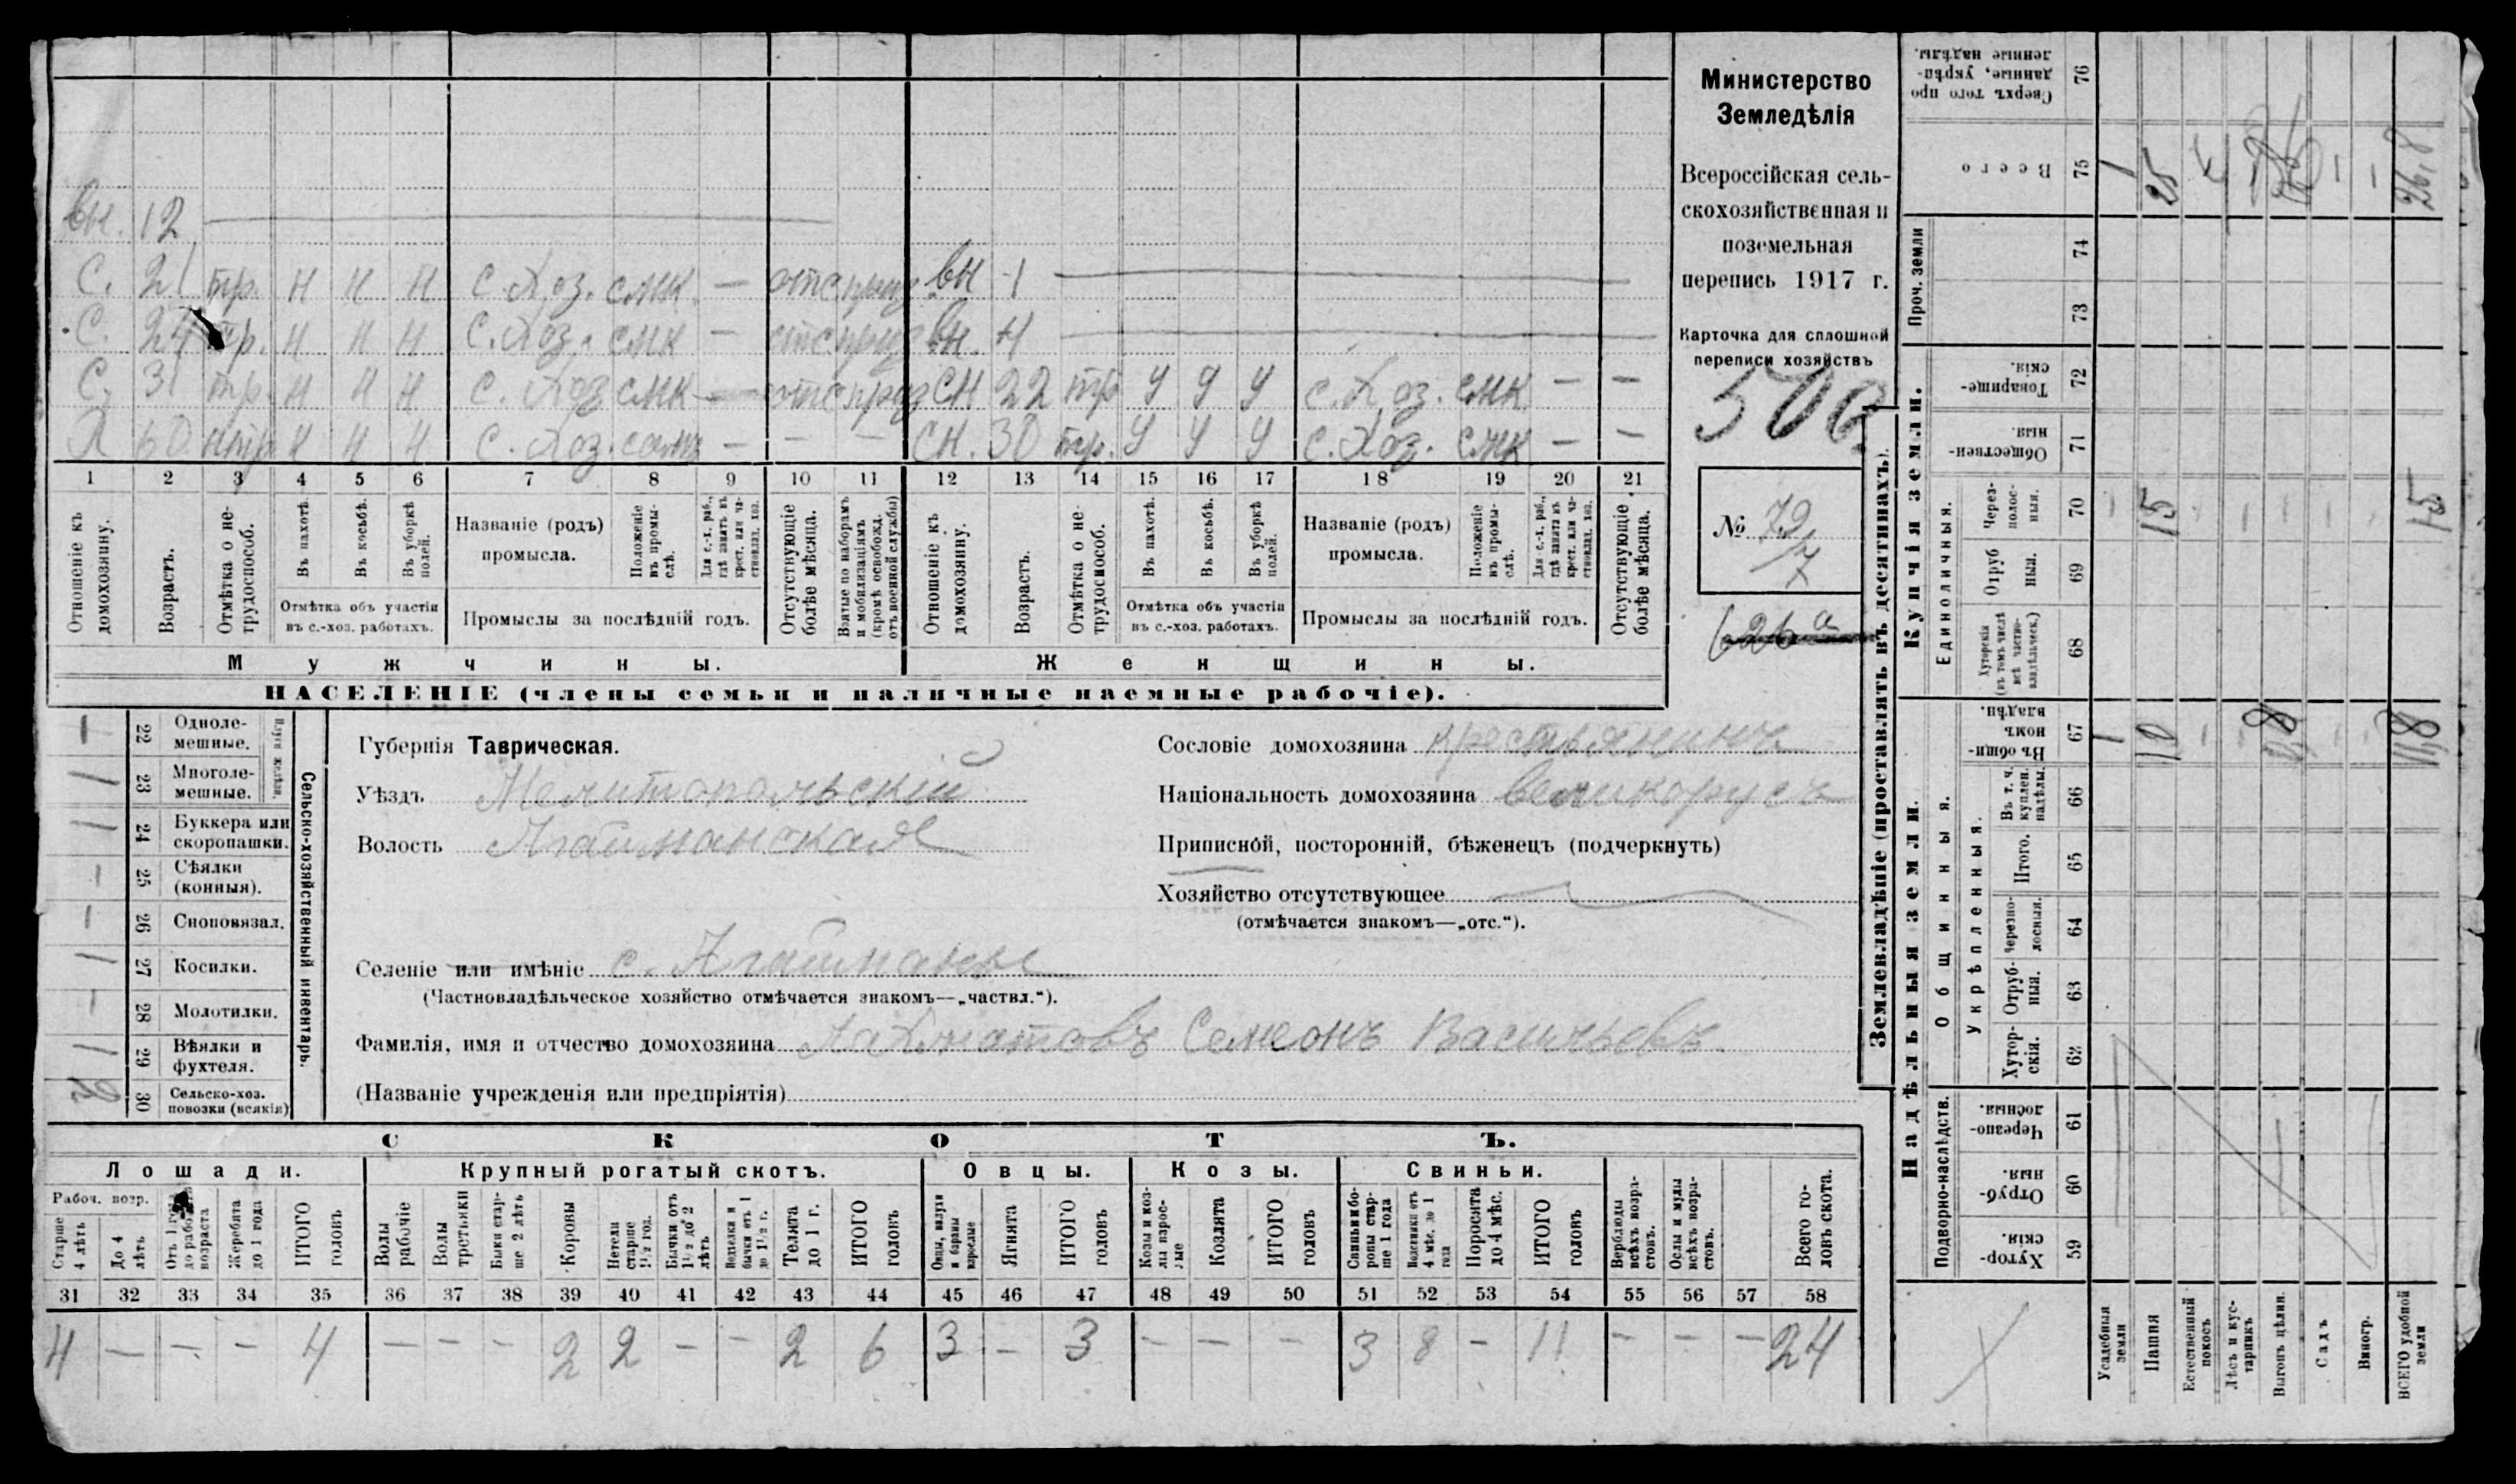 вн. 12
С. 21 тр. н н н С. Хоз. смк. — вн 1
С. 24 тр. н н н С. Хоз. смк — вн. 4
С. 31 тр. н н н С. Хоз смк — сн 22 тр У У У С. Хоз. смк — —
Д 60 нтр н н н С. Хоз. — — — сн. 30 тр. У У У С. Хоз. смк — —
1 2 3 4 5 6 7 8 9 10 11 12 13 14 15 16 17 18 19 20 21
Отношеніе къ домохозяину.
Возрастъ.
Отмѣтка о нетрудоспособ.
Въ пахотѣ.
Въ косьбѣ.
Въ уборкѣ полей.
Отмѣтка объ участіи
въ с.-хоз. работахъ.
Названіе (родъ)
промысла.
Положеніе въ промыслѣ.
Для с.-х. раб., гдѣ занятъ въ крест. или частновлад. хоз.
Промыслы за послѣдній годъ.
Отсутствующіе болѣе мѣсяца.
Взятые по наборамъ и мобилизаціямъ (кромѣ освобожд. отъ военной службы)
Отношеніе къ домохозяину.
Возрастъ.
Отмѣтка о нетрудоспособ.
Въ пахотѣ.
Въ косьбѣ.
Въ уборкѣ полей.
Отмѣтка объ участіи
въ с.-хоз. работахъ.
Названіе (родъ)
промысла.
Положеніе въ промыслѣ.
Для с.-х. раб., гдѣ занятъ въ крест. или частновлад. хоз.
Промыслы за послѣдній годъ.
Отсутствующіе болѣе мѣсяца.
Мужчины. Женщины.
НАСЕЛЕНІЕ (члены семьи и наличные наемные рабочіе).
Министерство
Земледѣлія
Всероссійская сель-
скохозяйственная и
поземельная
перепись 1917 г.
Карточка для сплошной
переписи хозяйствъ
№ 72
7
626а
— 22 Одноле-
мешные.
1 23 Многоле-
мешные.
Плуги желѣзн.
1 24 Буккера или
скоропашки.
— 25 Сѣялки
(конныя).
— 26 Сноповязал.
1 27 Косилки.
— 28 Молотилки.
1 29 Вѣялки и
фухтеля.
2 30 Сельско-хоз.
повозки (всякія)
Сельско-хозяйственный инвентарь.
Губернія Таврическая.
Уѣздъ Мелитопольскій
Волость Агайманская
Селеніе или имѣніе с. Агайманы
(Частновладѣльческое хозяйство отмѣчается знакомъ—„частвл.“).
Фамилія, имя и отчество домохозяина Лахматовъ Семеонъ Васильевъ
(Названіе учрежденія или предпріятія)
Сословіе домохозяина крестьянинъ
Національность домохозяина великорусъ
Приписной, посторонній, бѣженецъ (подчеркнуть)
Хозяйство отсутствующее
(отмѣчается знакомъ—„отс.“).
СКОТЪ.
Лошади. Крупный рогатый скотъ. Овцы. Козы. Свиньи.
Рабоч. возр.
Старше 4 лѣтъ
До 4 лѣтъ
Отъ 1 года до рабоч. возраста
Жеребята до 1 года
ИТОГО головъ
Волы рабочіе
Волы третьяки
Быки старше 2 лѣтъ
Коровы
Нетели старше 1½ год.
Бычки отъ 1½ до 2 лѣтъ
Телята до 1 г.
ИТОГО головъ
Ягнята
ИТОГО головъ
Козы и козлы взрослые
Козлята
ИТОГО головъ
Свиньи боровы старше 1 года
Поросята до 4 мѣс.
ИТОГО головъ
Верблюды всѣхъ возрастовъ.
Ослы и мулы всѣхъ возрастовъ.
Всего головъ скота.
31 32 33 34 35 36 37 38 39 40 41 42 43 44 45 46 47 48 49 50 51 52 53 54 55 56 57 58
4 — — — 4 — — — 2 2 — — 2 6 3 — 3 — — — 3 8 — 11 — — — 24
Землевладѣніе (проставлять въ десятинахъ).
Надѣльныя земли. Купчія земли. Проч. земли
Подворно-наслѣдств. Общинныя. Единоличныя.
Укрѣпленныя.
Сверхъ того проданные, укрѣпленные надѣлы. 76
Всего 75 1 25 26,8
74
73
Товарищескія. 72
Общественныя. 71
Черезполосныя. 70 15 15
Отрубныя. 69
Хуторскія (въ томъ числѣ всѣ частновладѣльческ.) 68
Въ общинномъ владѣн. 67 1 10 11,8
Въ т. ч. куплен. надѣлы. 66
Итого. 65
Черезполосныя. 64
Отрубныя. 63
Хуторскія. 62
Черезполосныя. 61
Отрубныя. 60
Хуторскія. 59
Усадебныя земли
Пашня
Естественный покосъ
Лѣсъ и кустарникъ
Выгонъ цѣлин.
Садъ
Виногр.
ВСЕГО удобной земли